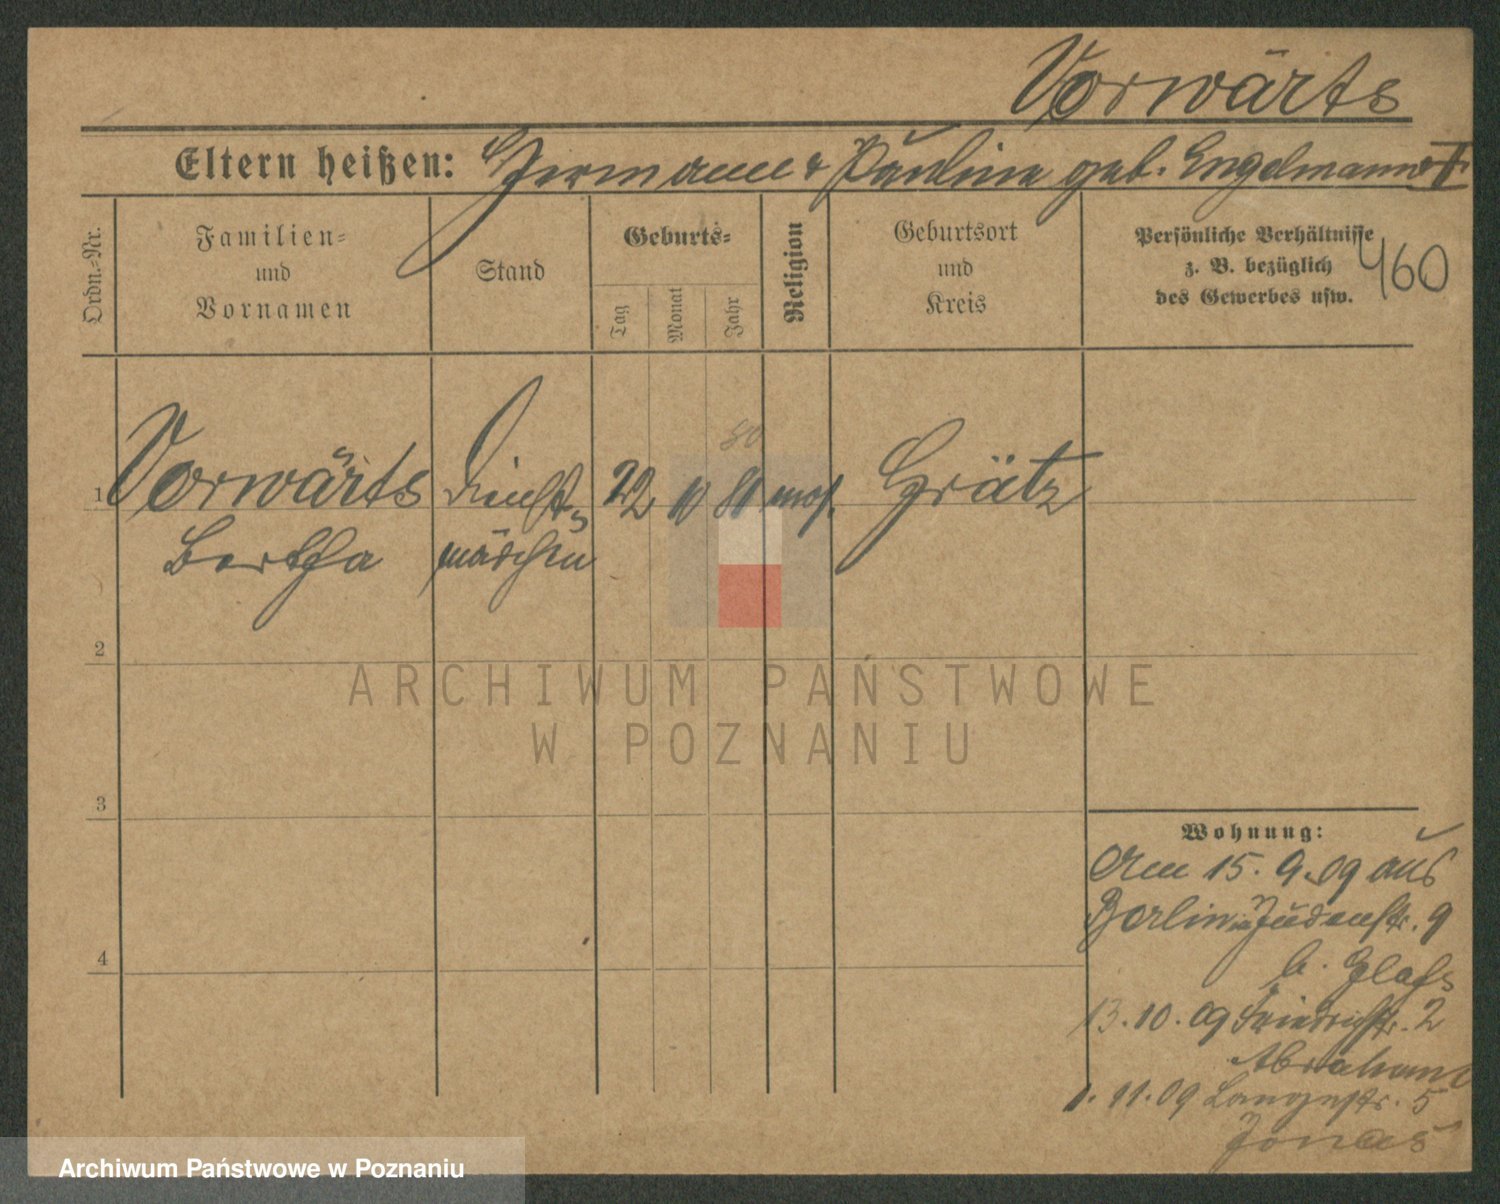 Vorwärts
Eltern heißen: Hermann & Pauline geb. Engelmann
460
Ordn.-Nr.
Familien-
und
Vornamen
Stand
Geburts-
Tag
Monat
Jahr
Religion
Geburtsort
und
Kreis
Persönliche Verhältnisse
z. B. bezüglich
des Gewerbes usw.
80
1 Vorwärts Dienst- 22 10 80 mos. Grätz
Bertha mädchen
2
3
4
ARCHIWUM PAŃSTWOWE
W POZNANIU
Wohnung:
Am 15. 9. 09 aus
Berlin in Judenstr. 9
b. Glass
13. 10. 09 Friedrichstr. 2
Abraham
1. 11. 09 Langestr. 5
Jonas
Archiwum Państwowe w Poznaniu